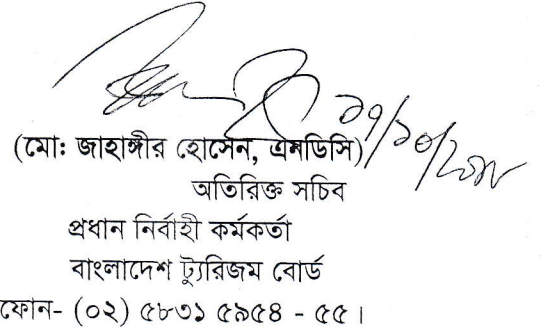 ১৭/১০/২০১৮
(মো: জাহাঙ্গীর হোসেন, এনডিসি)
অতিরিক্ত সচিব
প্রধান নির্বাহী কর্মকর্তা
বাংলাদেশ ট্যুরিজম বোর্ড
ফোন- (০২) ৫৮৩১ ৫৯৫৪ - ৫৫।